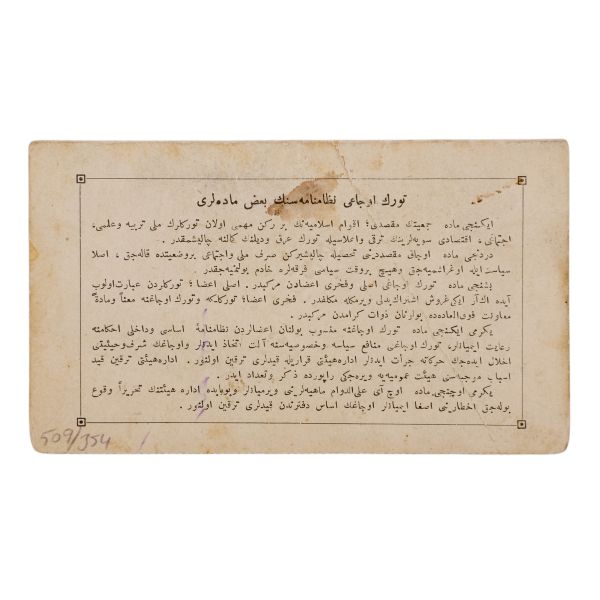 تورك اوجاغی نظامنامه‌سنك بعض ماده‌لری
ایكنجی ماده جمعیتك مقصدی؛ اقوام اسلامیه‌نك بر ركن مهمی اولان توركلرك ملی تربیه وعلمی،
اجتماعی، اقتصادی سویه‌لرینك ترقی واعلاسیله تورك عرق ودیلنك كماله چالیشمقدر.
دردنجی ماده اوجاق مقصدینی تحصیله چالیشیركن صرف ملی واجتماعی بروضعیتده قاله‌جق، اصلا
سیاست ایله اوغراشمیه‌جق وهیچ بروقت سیاسی فرقه‌لره خادم بولنمیه‌جقدر.
بشنجی ماده تورك اوجاغی اصلی وفخری اعضادن مركبدر. اصلی اعضا؛ توركلردن عبارت اولوب
آیده اك آز ایكی غروش اشتراك بدلی ویرمكله مكلفدر. فخری اعضا؛ توركلكه وتورك اوجاغنه معناً ومادةً
معاونت فوق‌العاده‌ده بولونان ذوات كرامدن مركبدر.
یكرمی ایكنجی ماده تورك اوجاغنه منسوب بولنان اعضالردن نظامنامهٔ اساسی وداخلی احكامنه
رعایت ایتمیانلر، تورك اوجاغنی منافع سیاسیه وخصوصیه‌سنه آلت اتخاذ ایدنلر واوجاغك شرف وحیثیتنی
اخلال ایده‌جك حركاته جرأت ایدنلر اداره هیئتی قراریله قیدلری ترقین اولنور. اداره هیئتی ترقین قید
اسباب موجبه‌سنی هیئت عمومیه‌یه ویره‌جكی راپورده ذكر وتعداد ایدر.
یكرمی اوچنجی ماده اوچ آی علی‌الدوام ماهیه‌لرینی ویرمیانلر وبوبابده اداره هیئتنك تحریراً وقوع
بوله‌جق اخطارینی اصغا ایتمیانلر اوجاغك اساس دفترندن قیدلری ترقین اولنور.
509/354